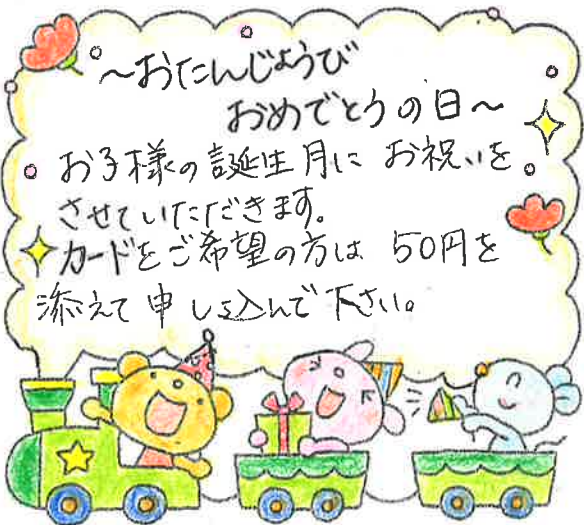 ～おたんじょうび
おめでとうの日～
お子様の誕生月に お祝いを
させていただきます。
カードをご希望の方は 50円を
添えて申し込んで下さい。